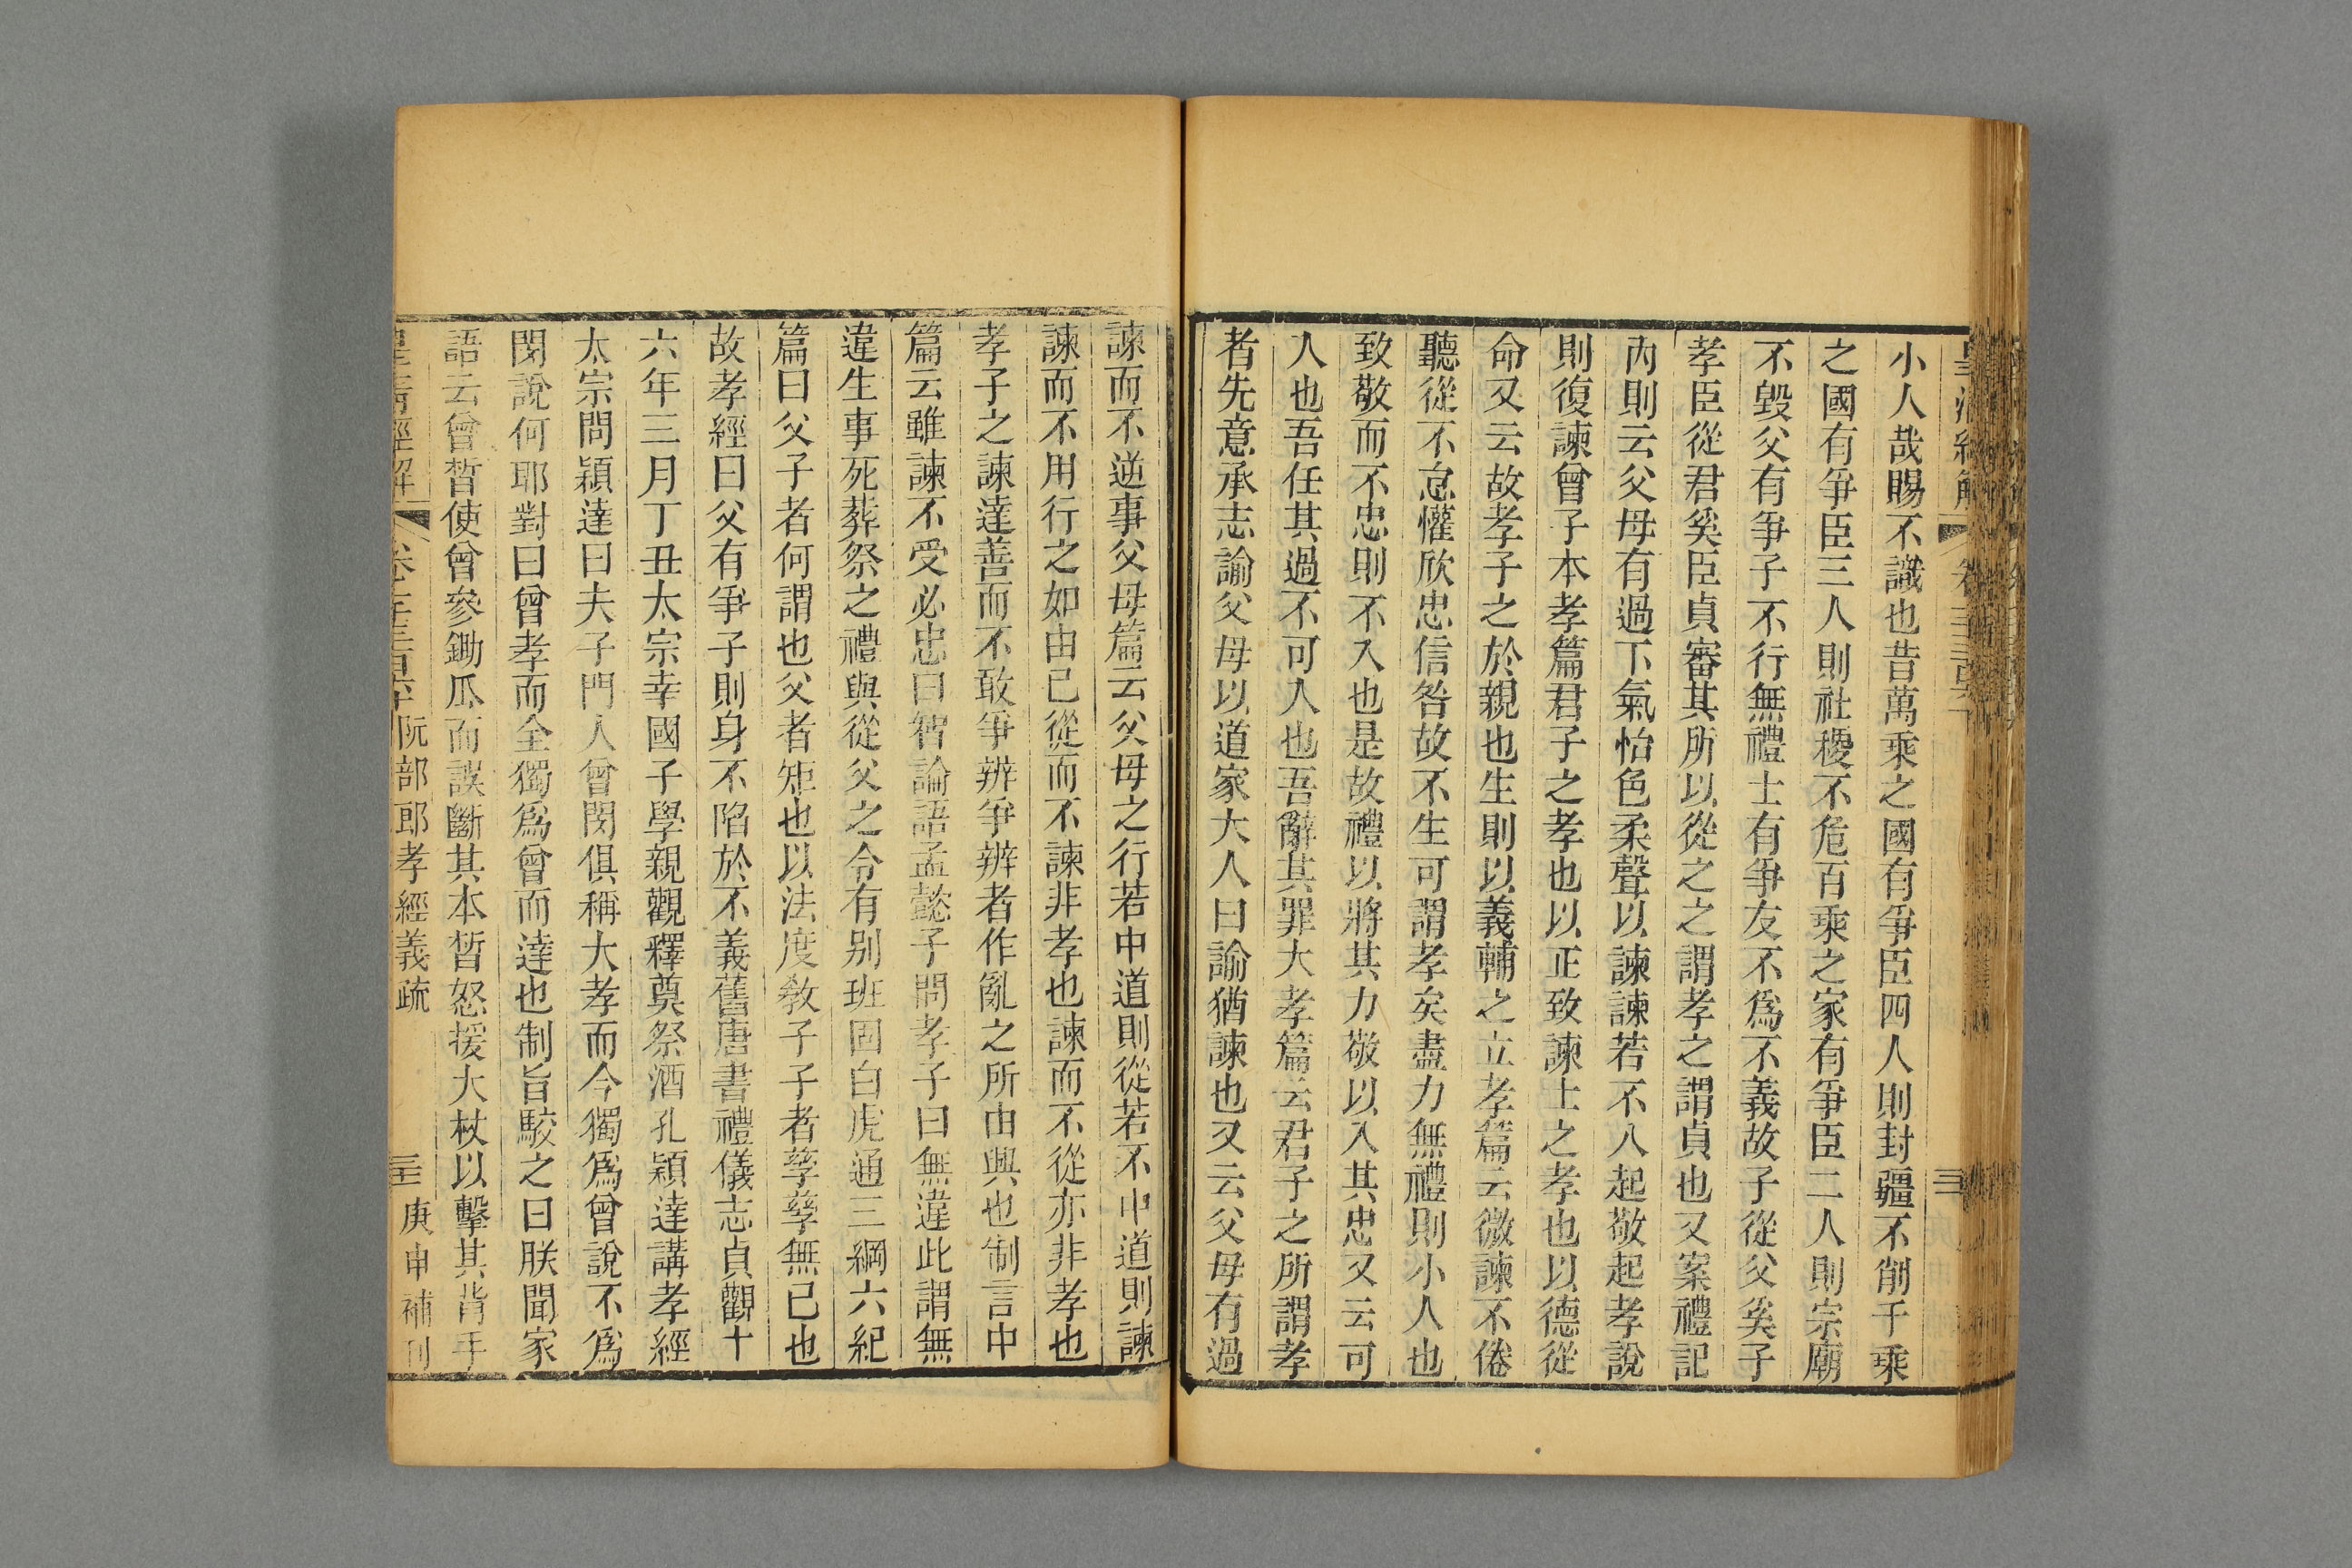 小人哉賜不識也昔萬乘之國有爭臣四人則封疆不削千乘
之國有爭臣三人則社稷不危百乘之家有爭臣二人則宗廟
不毀父有爭子不行無禮士有爭友不爲不義故子從父奚子
孝臣從君奚臣貞審其所以從之之謂孝之謂貞也又案禮記
內則云父母有過下氣怡色柔聲以諫諫若不入起敬起孝說
則復諫曾子本孝篇君子之孝也以正致諫士之孝也以德從
命又云故孝子之於親也生則以義輔之立孝篇云微諫不倦
聽從不怠懽欣忠信咎故不生可謂孝矣盡力無禮則小人也
致敬而不忠則不入也是故禮以將其力敬以入其忠又云可
人也吾任其過不可人也吾辭其罪大孝篇云君子之所謂孝
者先意承志諭父母以道家大人曰諭猶諫也又云父母有過
諫而不逆事父母篇云父母之行若中道則從若不中道則諫
諫而不用行之如由己從而不諫非孝也諫而不從亦非孝也
孝子之諫達善而不敢爭辨爭辨者作亂之所由興也制言中
篇云雖諫不受必忠曰智論語孟懿子問孝子曰無違此謂無
違生事死葬祭之禮與從父之令有别班固白虎通三綱六紀
篇曰父子者何謂也父者矩也以法度敎子子者孳孳無己也
故孝經曰父有爭子則身不陷於不義舊唐書禮儀志貞觀十
六年三月丁丑太宗幸國子學親觀釋奠祭酒孔穎達講孝經
太宗問穎達曰夫子門人曾閔俱稱大孝而今獨爲曾說不爲
閔說何耶對曰曾孝而全獨爲曾而達也制旨駮之曰朕聞家
語云曾晳使曾參鋤瓜而誤斷其本晳怒援大杖以擊其背手
皇淸經解 阮部郎孝經義疏 庚申補刊